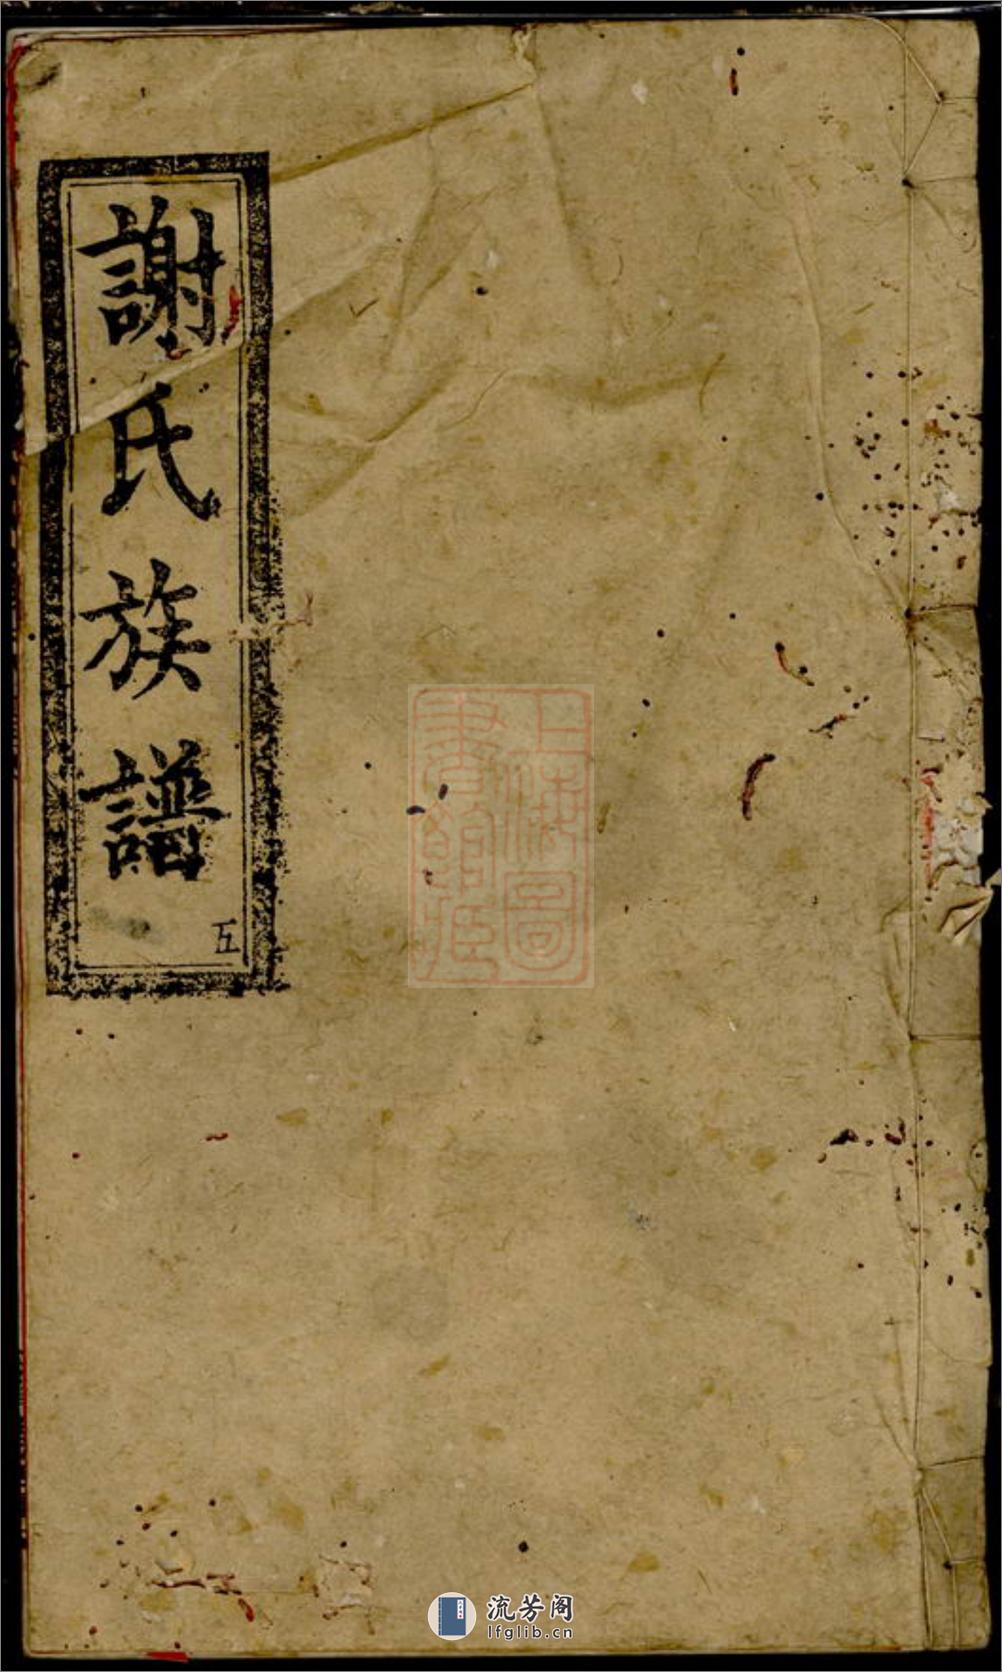 謝氏族譜
五
上海圖
書館藏
流芳阁
lfglib.cn